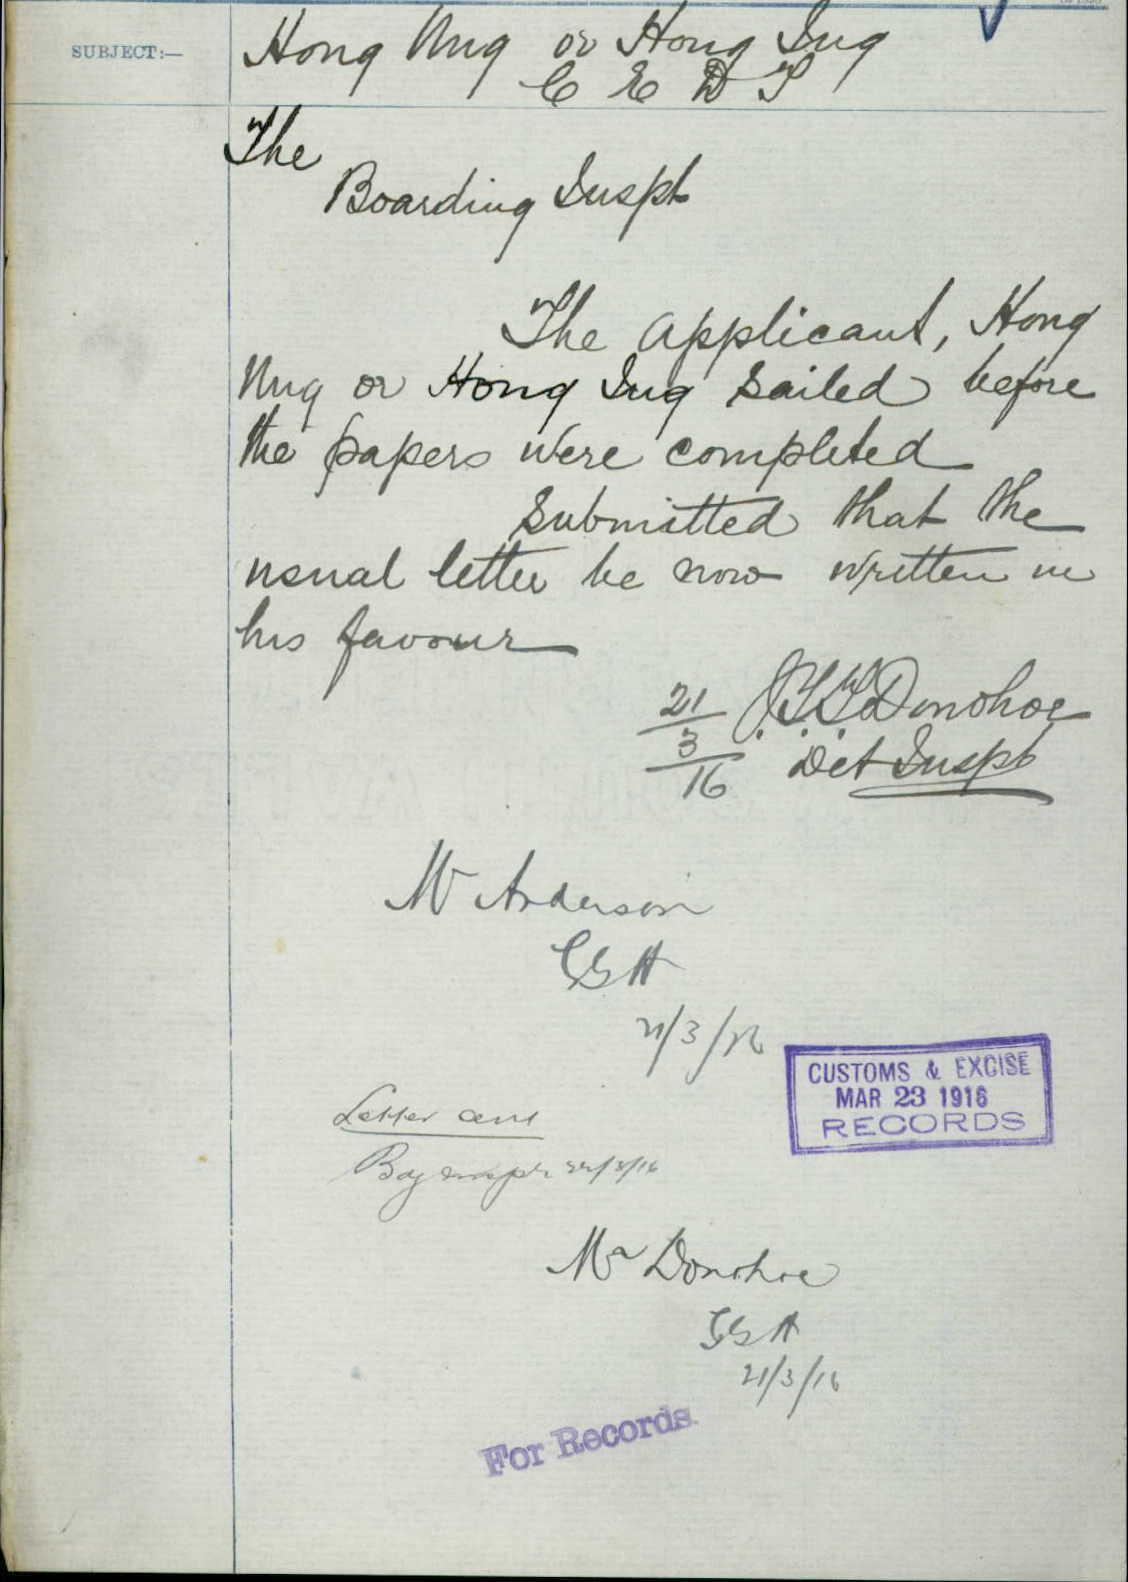 SUBJECT:—
Hong Nug or Hong Sug
C E D T
The
Boarding Inspt
The applicant, Hong
Nug or Hong Sug sailed before
the papers were completed
Submitted that the
usual letter be now written in
his favour
21
3
16
J.T.T. Donohoe
Det Inspt
Mr Anderson
21/3/16
CUSTOMS & EXCISE
MAR 23 1916
RECORDS
Letter sent
Bdg Inspr 22/3/16
Mr Donohoe
21/3/16
For Records.